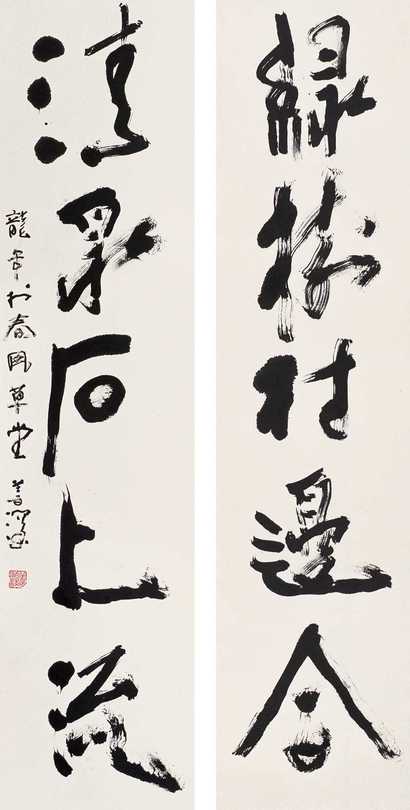 綠樹村邊合
清泉石上流
龍年於春風草堂 善深